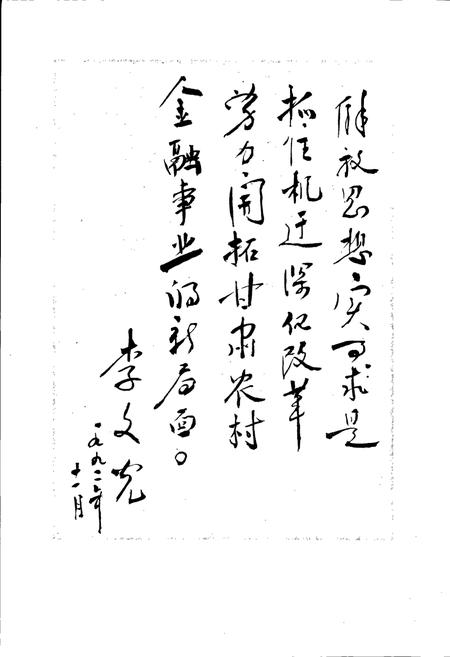 解放思想实事求是
抓住机遇深化改革
努力开拓甘肃农村
金融事业的新局面。
李文
一九九二年
十一月